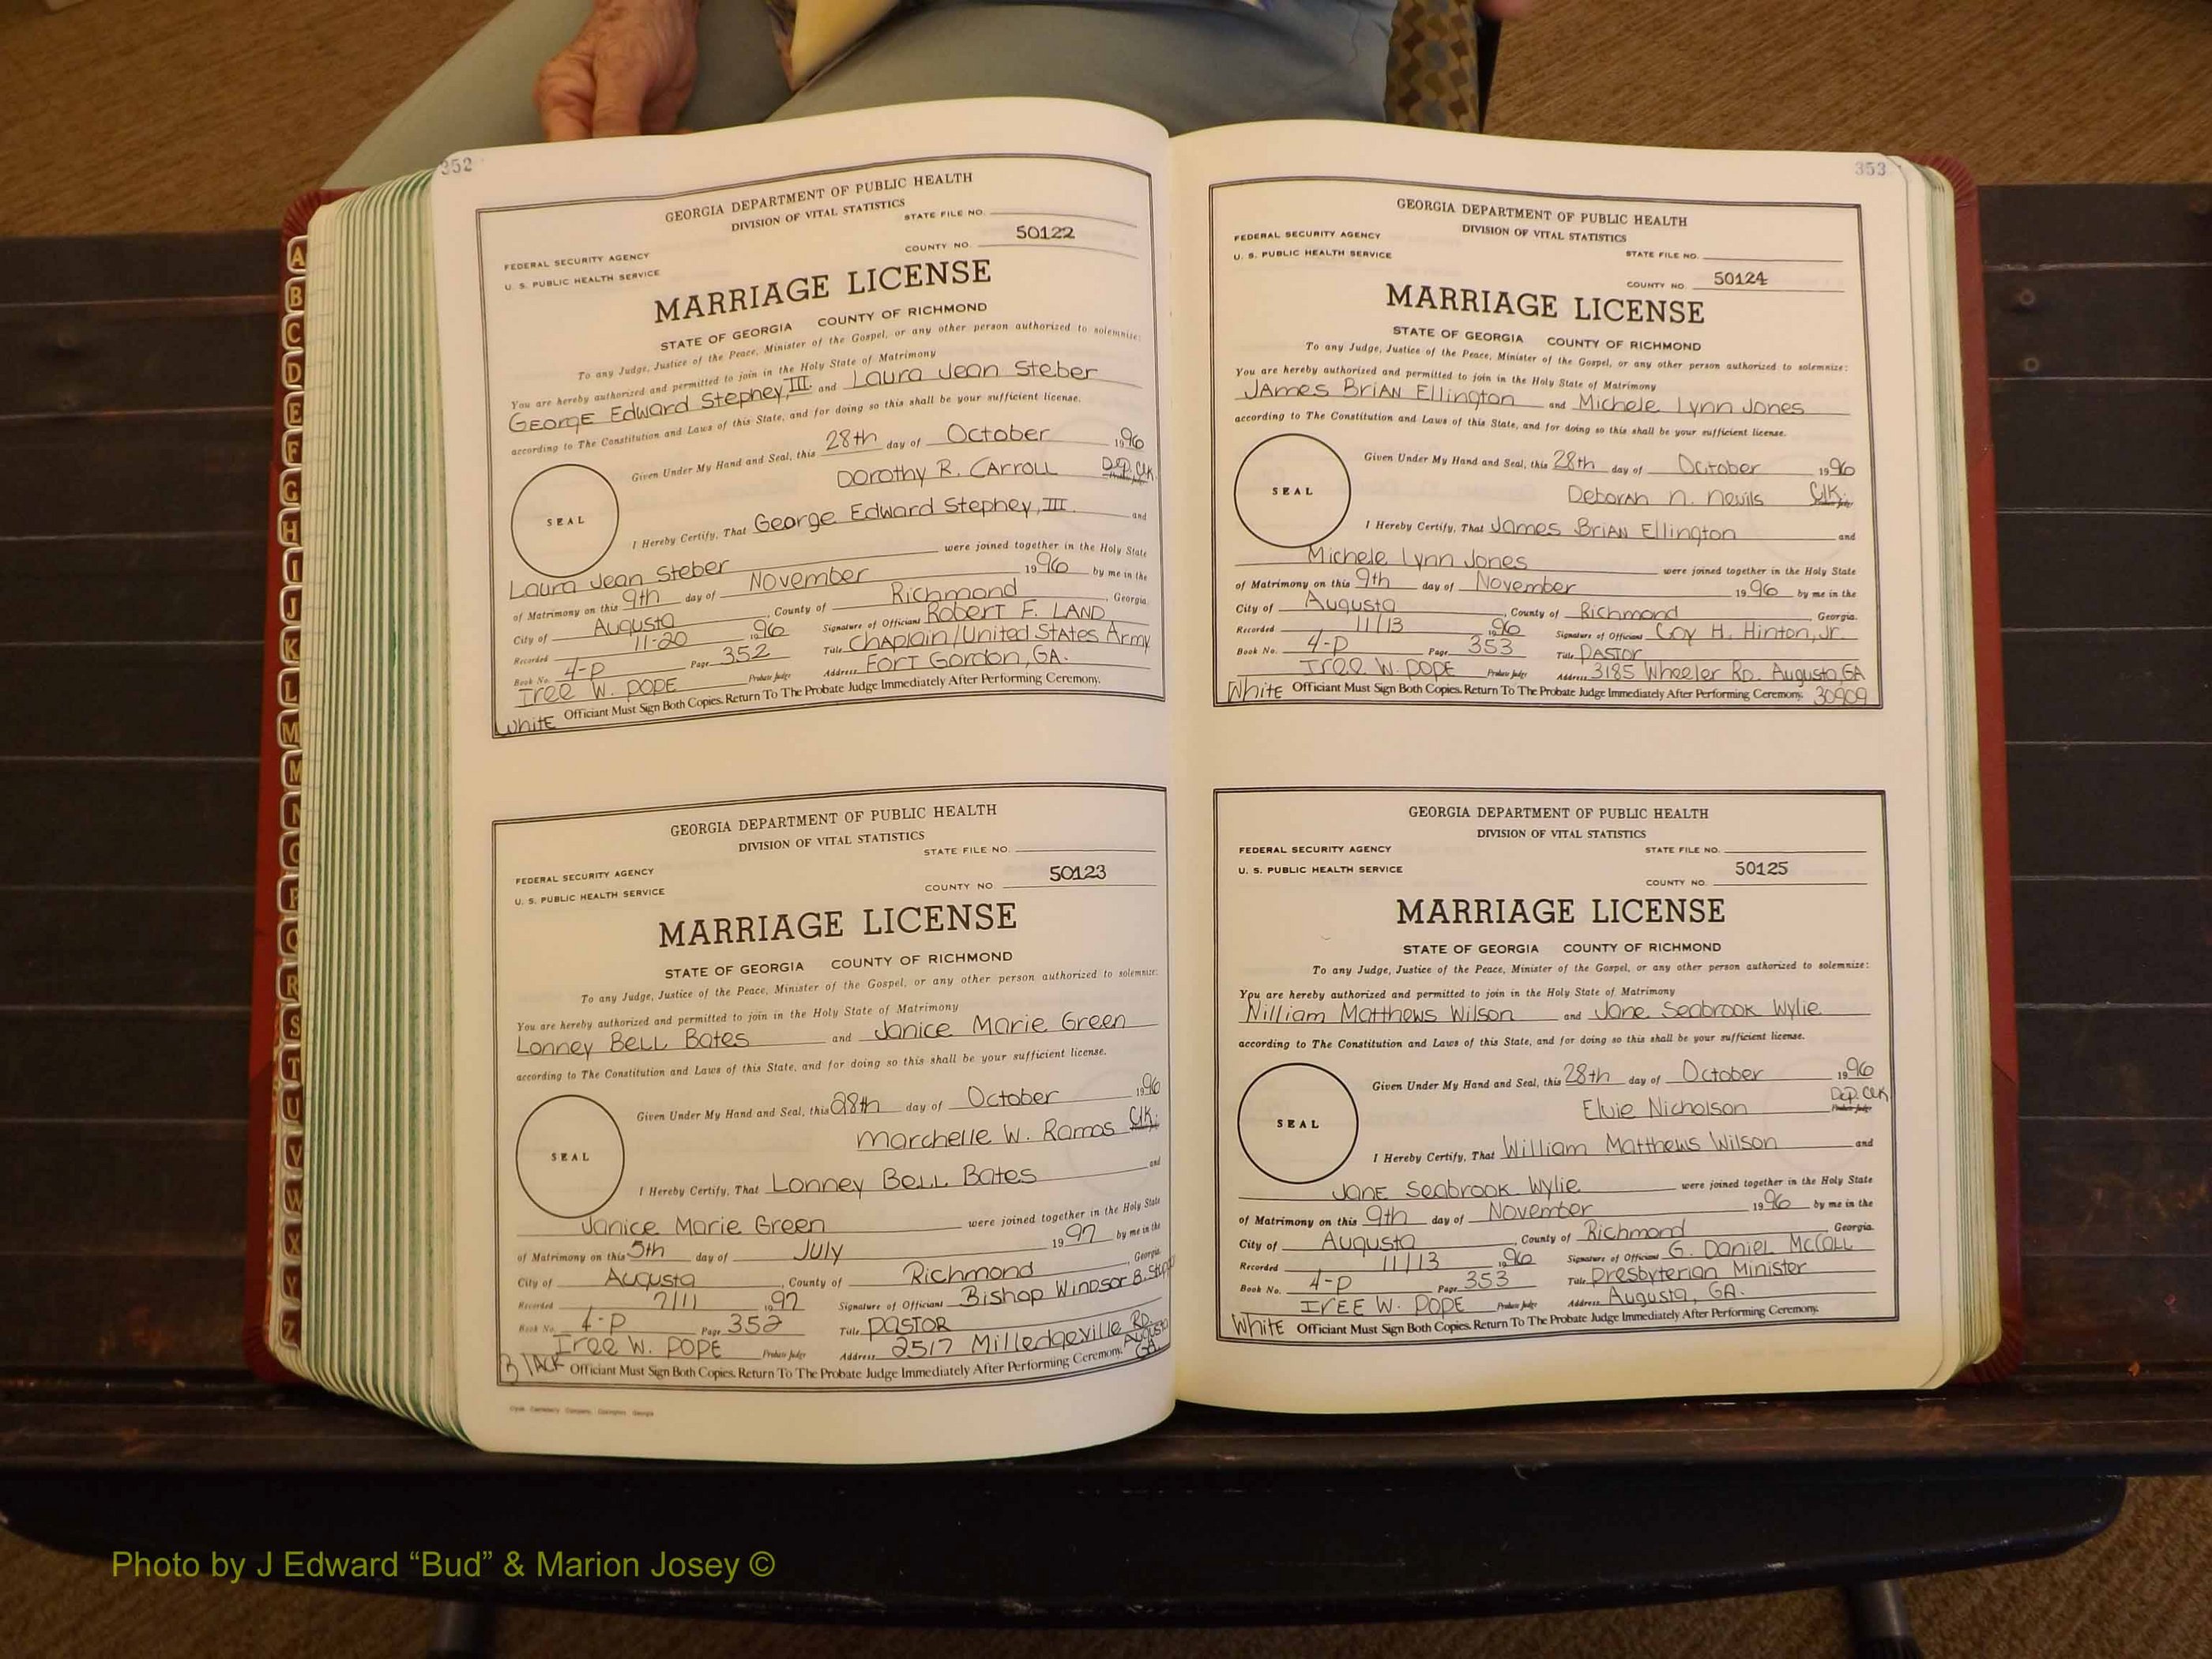 352
GEORGIA DEPARTMENT OF PUBLIC HEALTH
DIVISION OF VITAL STATISTICS
STATE FILE NO.
FEDERAL SECURITY AGENCY
COUNTY NO. 50122
U. S. PUBLIC HEALTH SERVICE
MARRIAGE LICENSE
STATE OF GEORGIA COUNTY OF RICHMOND
To any Judge, Justice of the Peace, Minister of the Gospel, or any other person authorized to solemnize:
You are hereby authorized and permitted to join in the Holy State of Matrimony
George Edward Stephey, III. and Laura Jean Steber
according to The Constitution and Laws of this State, and for doing so this shall be your sufficient license.
Given Under My Hand and Seal, this 28th day of October 1996
Dorothy R. Carroll Dep. Clk
SEAL
I Hereby Certify, That George Edward Stephey, III. and
Laura Jean Steber were joined together in the Holy State
of Matrimony on this 9th day of November 1996 by me in the
City of Augusta, County of Richmond, Georgia.
Recorded 11-20 1996 Signature of Officiant Robert F. Land
Book No. 4-P Page 352 Title Chaplain/United States Army
Iree W. Pope Probate Judge Address Fort Gordon, GA.
White Officiant Must Sign Both Copies. Return To The Probate Judge Immediately After Performing Ceremony.
GEORGIA DEPARTMENT OF PUBLIC HEALTH
DIVISION OF VITAL STATISTICS
STATE FILE NO.
FEDERAL SECURITY AGENCY
COUNTY NO 50123
U. S. PUBLIC HEALTH SERVICE
MARRIAGE LICENSE
STATE OF GEORGIA COUNTY OF RICHMOND
To any Judge, Justice of the Peace, Minister of the Gospel, or any other person authorized to solemnize:
You are hereby authorized and permitted to join in the Holy State of Matrimony
Lonney Bell Bates and Janice Marie Green
according to The Constitution and Laws of this State, and for doing so this shall be your sufficient license.
Given Under My Hand and Seal, this 28th day of October 1996
Marchelle W. Ramos Clk.
SEAL
I Hereby Certify, That Lonney Bell Bates and
Janice Marie Green were joined together in the Holy State
of Matrimony on this 5th day of July 1997 by me in the
City of Augusta, County of Richmond, Georgia.
Recorded 7/11 1997 Signature of Officiant Bishop Windsor B.
Book No. 4-P Page 352 Title Pastor
Iree W. Pope Probate Judge Address 2517 Milledgeville RD. Augusta GA.
Black Officiant Must Sign Both Copies. Return To The Probate Judge Immediately After Performing Ceremony.
353
GEORGIA DEPARTMENT OF PUBLIC HEALTH
DIVISION OF VITAL STATISTICS
FEDERAL SECURITY AGENCY
U. S. PUBLIC HEALTH SERVICE STATE FILE NO.
COUNTY NO. 50124
MARRIAGE LICENSE
STATE OF GEORGIA COUNTY OF RICHMOND
To any Judge, Justice of the Peace, Minister of the Gospel, or any other person authorized to solemnize:
You are hereby authorized and permitted to join in the Holy State of Matrimony
James Brian Ellington and Michele Lynn Jones
according to The Constitution and Laws of this State, and for doing so this shall be your sufficient license.
Given Under My Hand and Seal, this 28th day of October 1996
Deborah N. Nevils Clk.
SEAL
I Hereby Certify, That James Brian Ellington and
Michele Lynn Jones were joined together in the Holy State
of Matrimony on this 9th day of November 1996 by me in the
City of Augusta, County of Richmond Georgia.
Recorded 11/13 1996 Signature of Officiant Coy H. Hinton, Jr.
Book No. 4-P Page 353 Title Pastor
Iree W. Pope Probate Judge Address 3185 Wheeler Rd. Augusta, GA
White Officiant Must Sign Both Copies. Return To The Probate Judge Immediately After Performing Ceremony. 30909
GEORGIA DEPARTMENT OF PUBLIC HEALTH
DIVISION OF VITAL STATISTICS
FEDERAL SECURITY AGENCY STATE FILE NO.
U. S. PUBLIC HEALTH SERVICE
COUNTY NO. 50125
MARRIAGE LICENSE
STATE OF GEORGIA COUNTY OF RICHMOND
To any Judge, Justice of the Peace, Minister of the Gospel, or any other person authorized to solemnize:
You are hereby authorized and permitted to join in the Holy State of Matrimony
William Matthews Wilson and Jane Seabrook Wylie
according to The Constitution and Laws of this State, and for doing so this shall be your sufficient license.
Given Under My Hand and Seal, this 28th day of October 1996
Elvie Nicholson Dep. Clk
SEAL
I Hereby Certify, That William Matthews Wilson and
Jane Seabrook Wylie were joined together in the Holy State
of Matrimony on this 9th day of November 1996 by me in the
City of Augusta, County of Richmond, Georgia.
Recorded 11/13 1996 Signature of Officiant G. Daniel McCall
Book No. 4-P Page 353 Title Presbyterian Minister
Iree W. Pope Probate Judge Address Augusta, GA.
White Officiant Must Sign Both Copies. Return To The Probate Judge Immediately After Performing Ceremony.
A
B
C
D
E
F
G
H
I
J
K
L
M
M
N
O
P
Q
R
S
T
U
V
W
X
Y
Z
Photo by J Edward “Bud” & Marion Josey ©